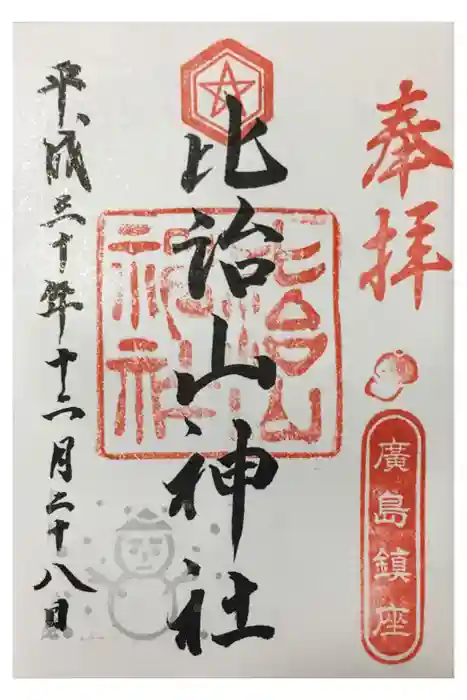 奉拝
廣島鎮座
比治山神社
比治山
神社
平成三十年十二月二十八日